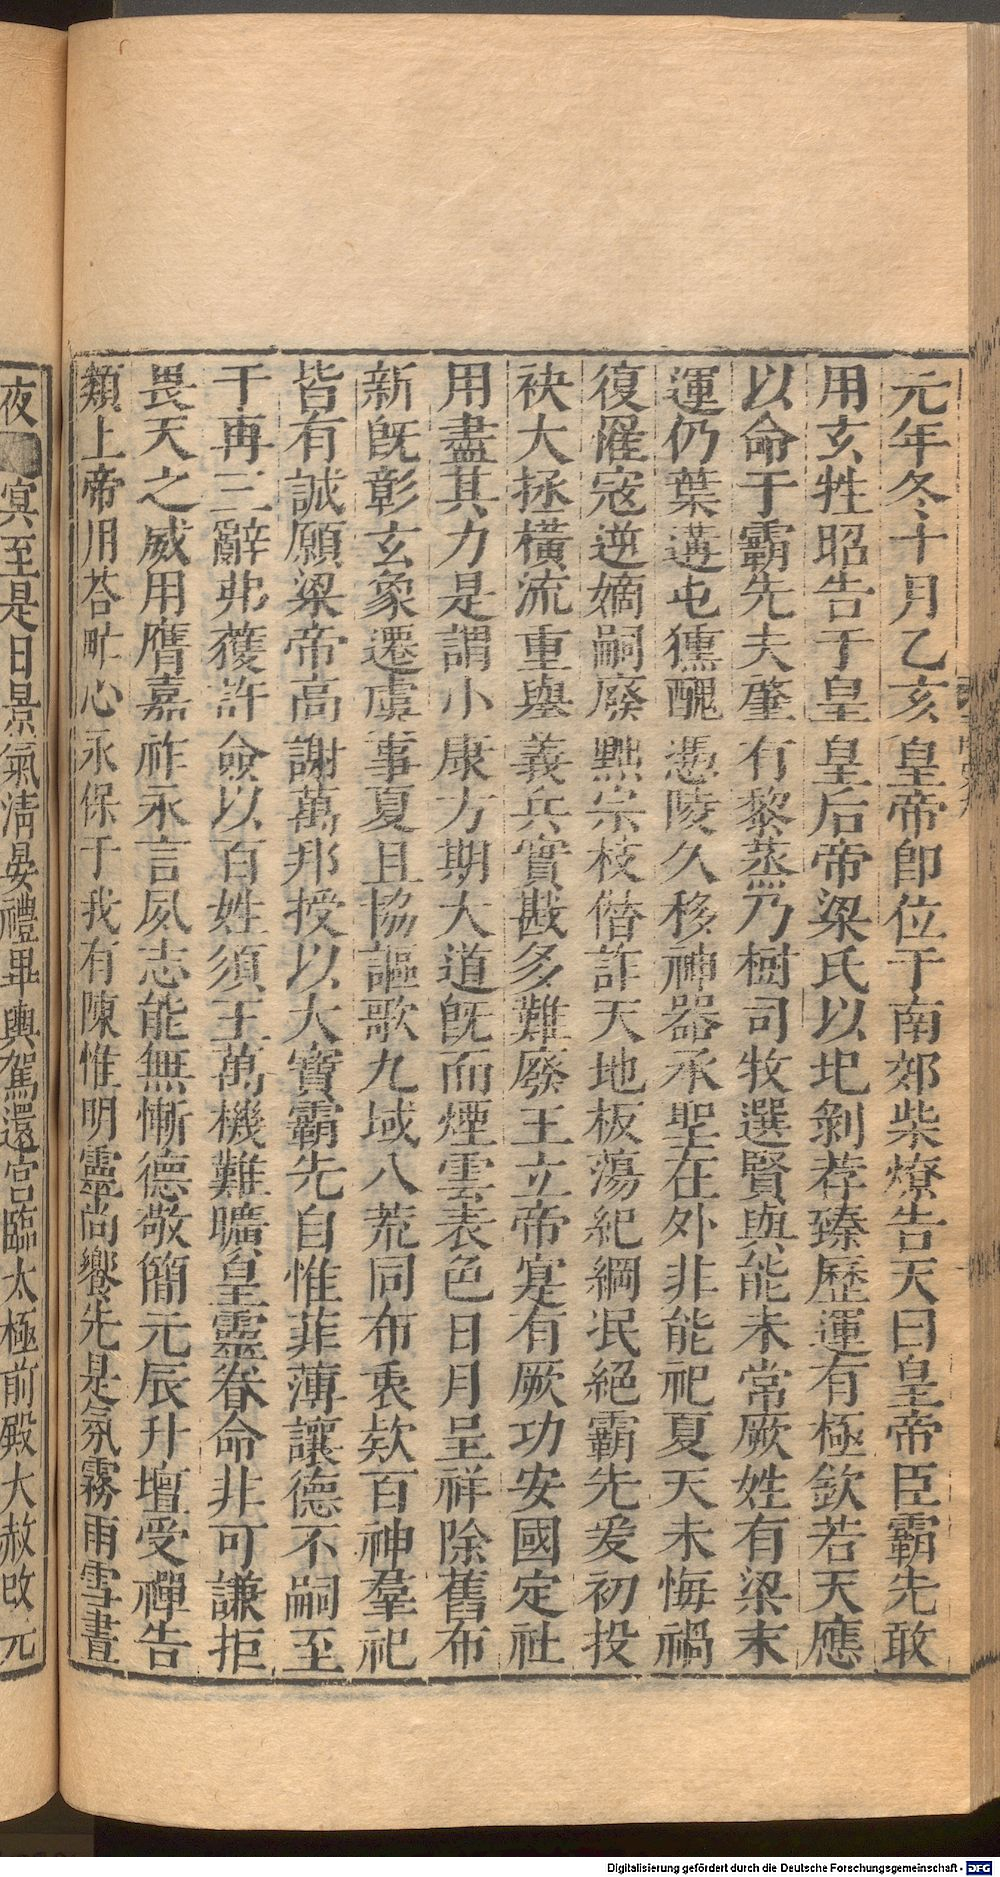 元年冬十月乙亥皇帝卽位于南郊柴燎告天曰皇帝臣霸先敢
用玄牲昭告于皇皇后帝梁氏以圯剝荐臻歷運有極欽若天應
以命于霸先夫肇有黎蒸乃樹司牧選賢與能未常厥姓有梁末
運仍葉遘屯獯醜憑陵久移神器承聖在外非能祀夏天未悔禍
復罹寇逆嫡嗣廢黜宗枝僭詐天地板蕩紀綱泯絕霸先爰初投
袂大拯橫流重舉義兵實戡多難廢王立帝寔有厥功安國定社
用盡其力是謂小康方期大道旣而煙雲表色日月呈祥除舊布
新旣彰玄象遷虞事夏且協謳歌九域八荒同布衷款百神羣祀
皆有誠願梁帝高謝萬邦授以大寶霸先自惟菲薄讓德不嗣至
于再三辭弗獲許僉以百姓須主萬機難曠皇靈眷命非可謙拒
畏天之威用膺嘉祚永言夙志能無慚德敬簡元辰升壇受禪告
類上帝用荅甿心永保于我有陳惟明靈尚饗先是氛霧雨雪晝
夜冥至是日景氣淸晏禮畢輿駕還宮臨太極前殿大赦改元
Digitalisierung gefördert durch die Deutsche Forschungsgemeinschaft - DFG